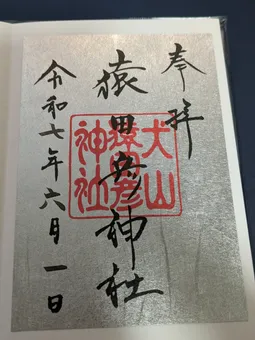 奉拝
猿田彦神社
犬山
猿田彦
神社
令和七年六月一日